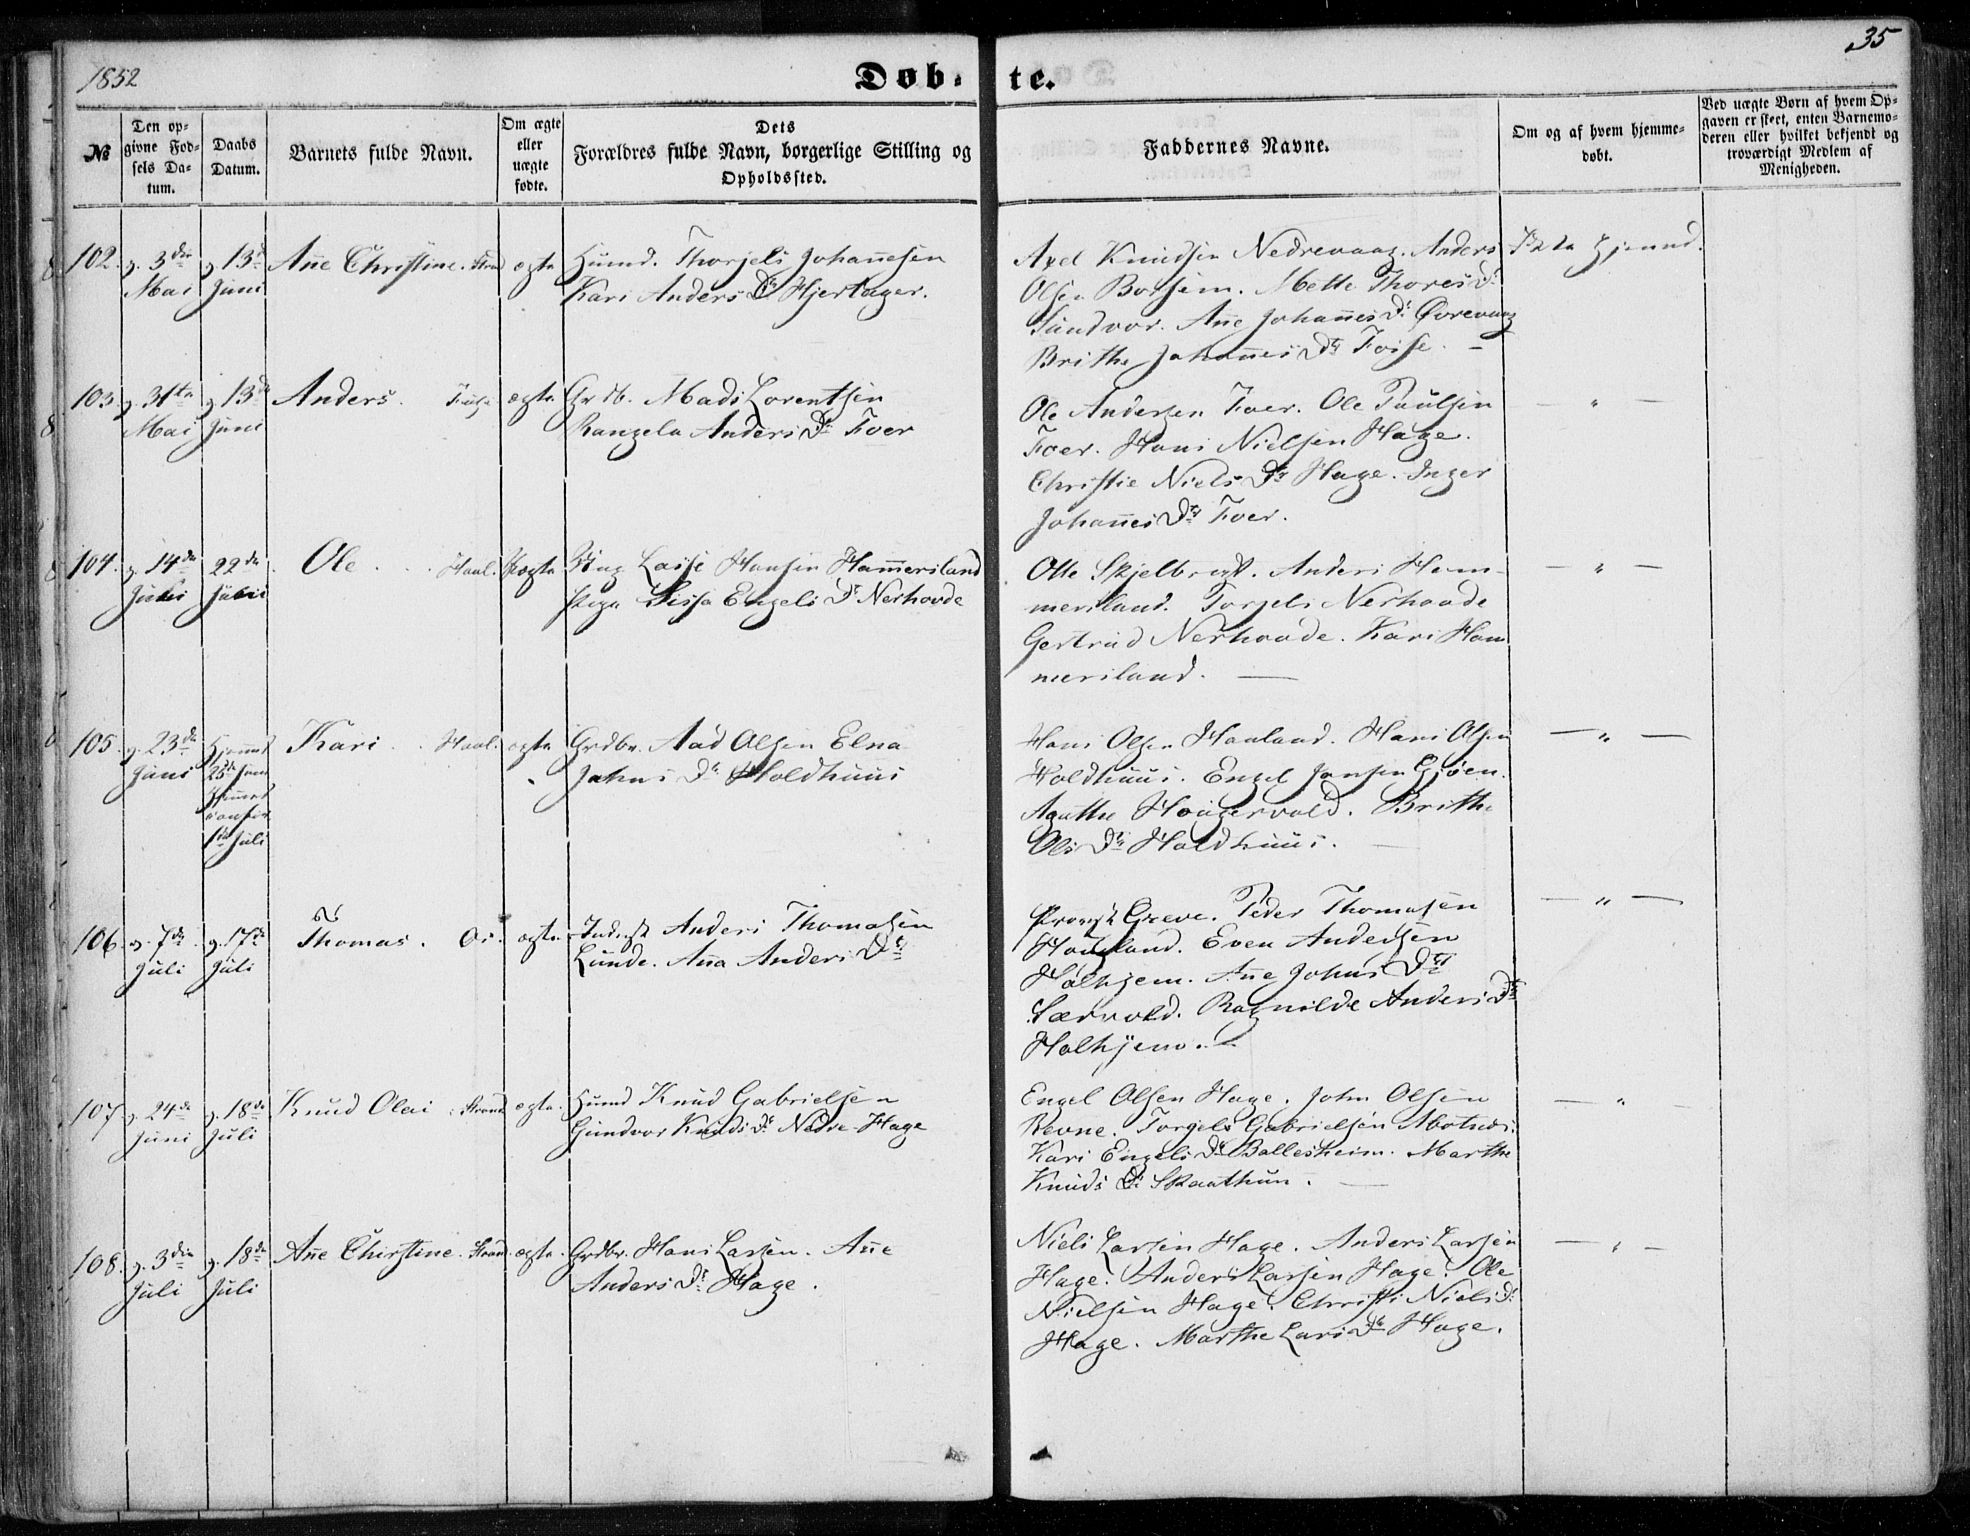 1852
35
Døb-te.
№
Den op-
givne Fød-
sels Da-
tum.
Daabs
Datum.
Barnets fulde Navn.
Om ægte
eller
uægte
fødte.
Dets
Forældres fulde Navn, borgerlige Stilling og
Opholdssted.
Faddernes Navne.
Om og af hvem hjemme-
døbt.
Ved uægte Børn af hvem Op-
gaven er skeet, enten Barnemo-
deren eller hvilket bekjendt og
troværdigt Medlem af
Menigheden.
102. 3die
Mai
13de
Juni
Ane Christine. Strand ægte
Huusmd. Thorgels Johannesen
Kari Anders Dr Hjertager.
Axel Knudsen Nedrevaag. Anders
Olsen Botsem. Mette Thores Dr
Sandvor. Ane Johannes Dr Øvrevaag
Brithe Johannes Dr Foisse. —
Ikke hjemmd.
103. 31te
Mai
13de
Juni
Anders. ægte
Grdb. Mads Lorentsen
Rangela Anders Dr Foer
Ole Andersen Foer. Ole Paulsen
Foer. Hans Nielsen Hage.
Christie Niels Dr Hage. Inger
Johannes Dr Foer.
— " —
104. 14de
Juni
22de
Juni
Ole. Haal. ægte
Lasse Hansen Hammersland
Pige Sissa Engels Dr Nerhovde
Otte Skjelbred. Anders Ham-
mersland. Torgels Nerhovde
Gertrud Nerhovde. Kari Ham
mersland. —
— " —
105. 23de
Juni
Hjemmd
25de Juni
1ste Juli
Kari. Haal. ægte
Grdbr. Aad Olsen Elna
Johns Dr Holdhuus
Hans Olsen Haaland. Hans Olsen
Holdhuus. Engel Jansen Gjøen.
Agathe Hougervold. Brithe
Ols Dr Holdhuus. —
— " —
106. 7de
Juli
17de
Juli
Thomas. Os. ægte.
Inderst Anders Thomasen
Lunde. Ana Anders Dr
Provst Greve. Peder Thomasen
Hougland. Even Andersen
Halhjem. Ane Johns Dr
Særvold. Ragnilde Anders Dr
Halhjem. —
— " —
107. 24de
Juni
18de
Juli
Knud Olai. Strand ægte.
Huusmd Knud Gabrielsen
Gundvor Knuds Dr Nedre Hage
Engel Olsen Hage. John Olsen
Revne. Torgels Gabrielsen Motnes.
Kari Engels Dr Ballesheim. Marthe
Knuds Dr Skaathun. —
— " —
108. 3die
Juli
18de
Juli
Ane Christine. Strand. ægte.
Grdbr. Hans Larsen. Ane
Anders Dr Hage.
Niels Larsen Hage. Anders Larsen
Hage. Anders Larsen Hage. Ole
Nielsen Hage. Christi Niels Dr
Hage. Marthe Lars Dr Hage.
— " —